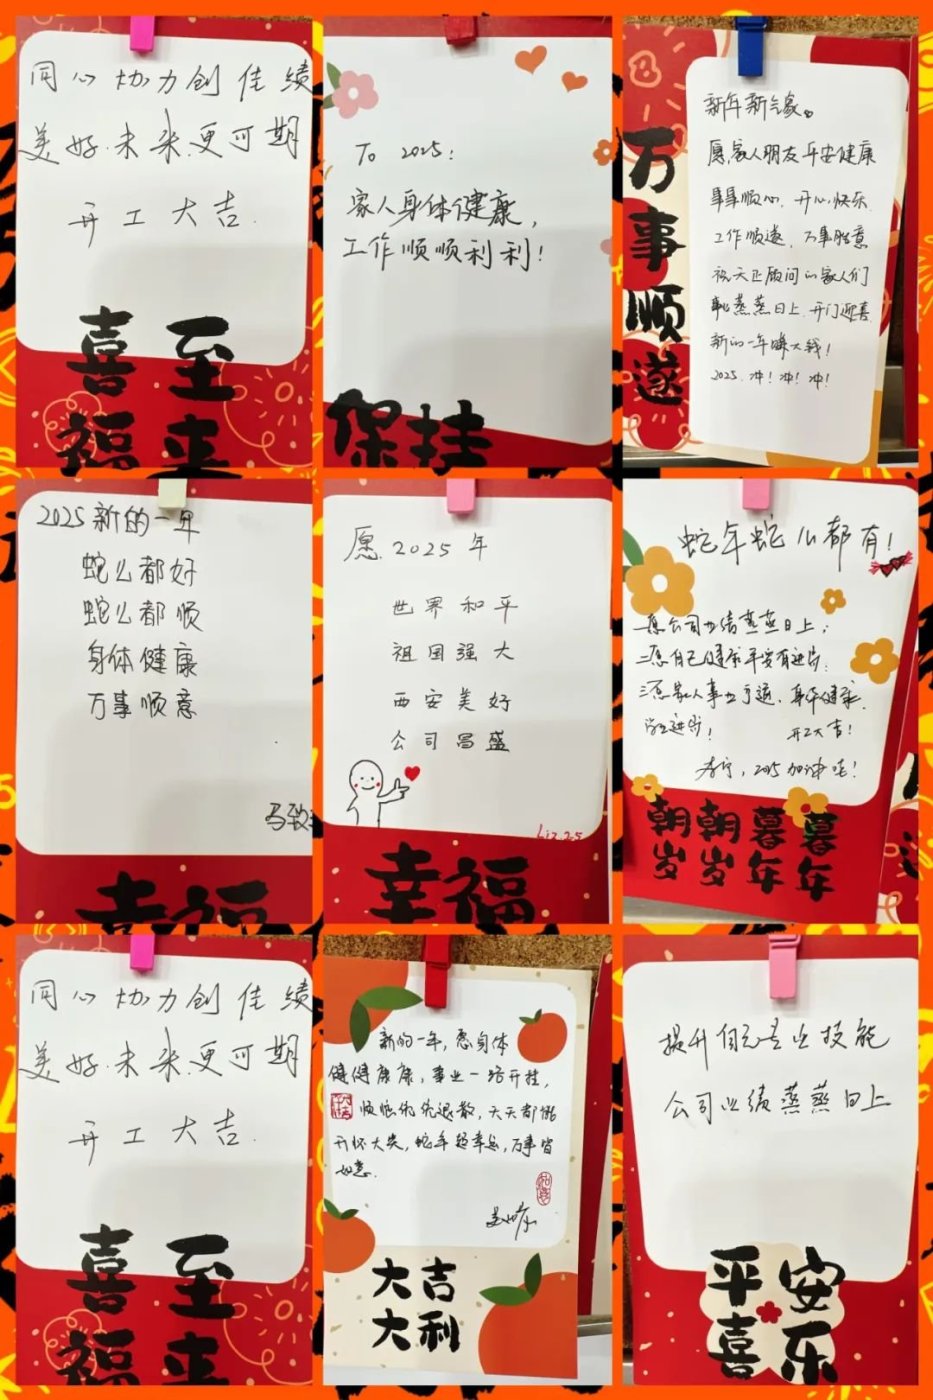 同心协力创佳绩
美好未来更可期
开工大吉.
喜至
福来
To 2025:
家人身体健康,
工作顺顺利利!
保挂
新年新气象。
愿家人朋友平安健康
事事顺心. 开心快乐
工作顺遂. 万事胜意
祝天正顾问的家人们
事业蒸蒸日上. 开门迎喜
新的一年赚大钱!
2025. 冲! 冲! 冲!
万事顺遂
2025新的一年
蛇么都好
蛇么都顺
身体健康
万事顺意
马致
幸福
愿2025年
世界和平
祖国强大
西安美好
公司昌盛
幸福
蛇年蛇么都有!
一愿公司业绩蒸蒸日上;
二愿自己健康平安有进步;
三愿家人事业亨通、身体健康.
学业进步! 开工大吉!
2025加油哇!
朝朝暮暮
岁岁年年
同心协力创佳绩
美好未来更可期
开工大吉.
喜至
福来
新的一年, 愿身体
健健康康, 事业一路开挂,
烦恼优优退散, 天天都能
开怀大笑, 蛇年超幸运, 万事皆
如意.
大吉
大利
提升自己专业技能
公司业绩蒸蒸日上
平安
喜乐